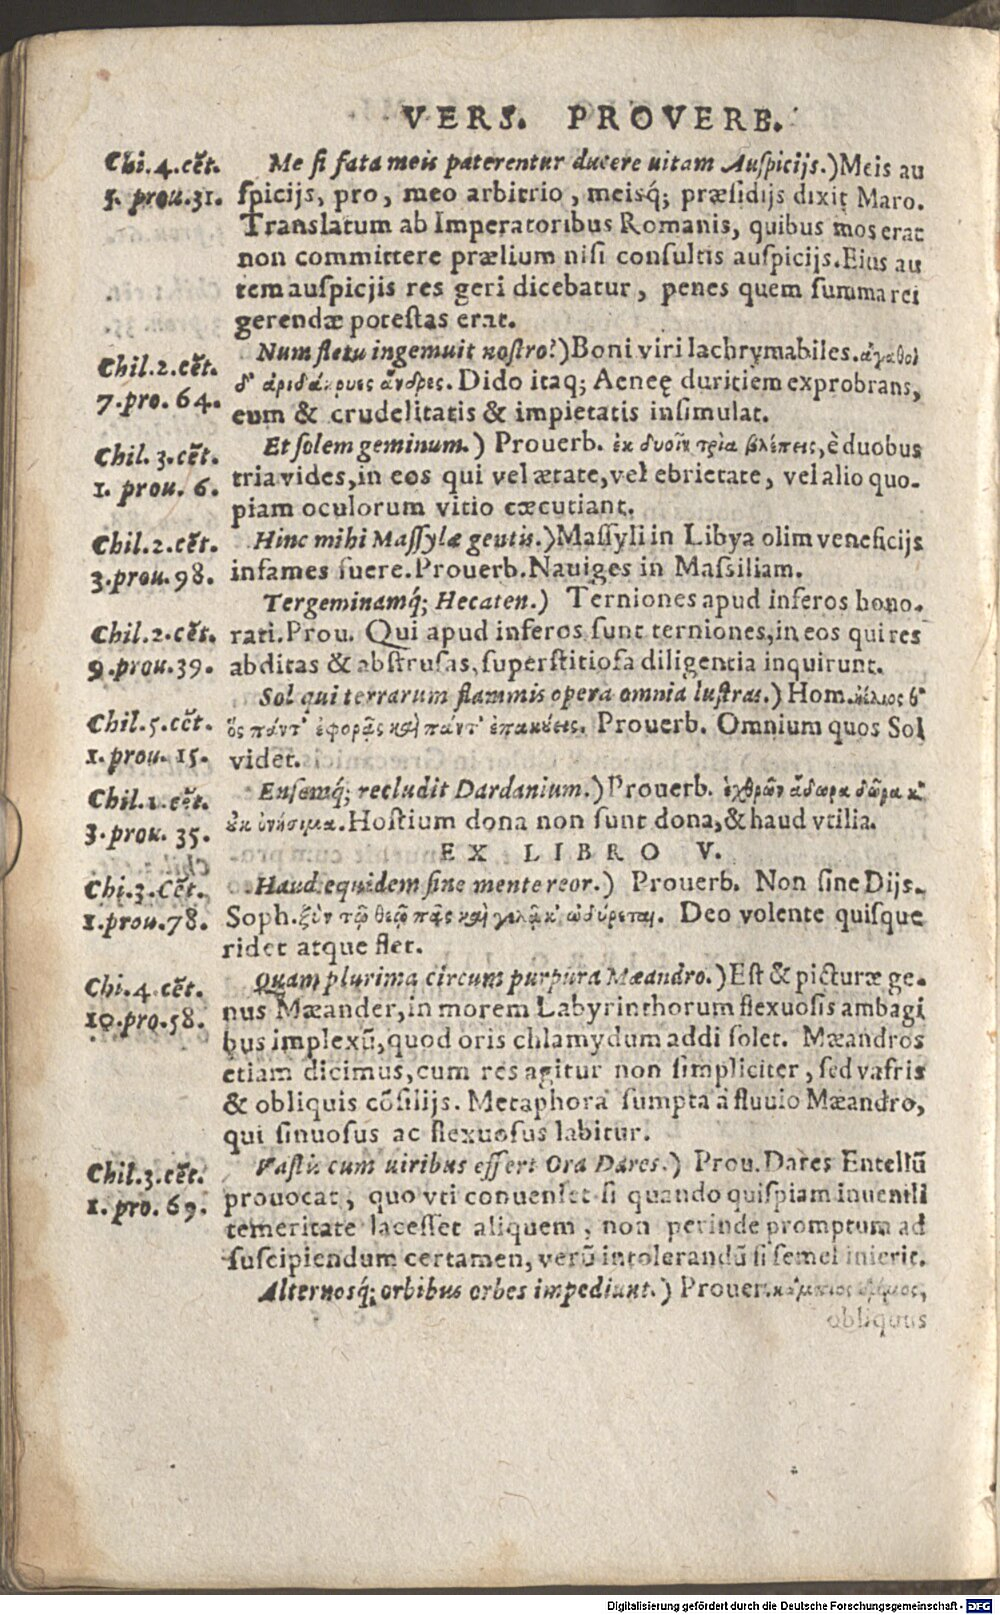 VERS. PROVERB.
Chi.4.cēt.
5. prou.31.
Me si fata meis paterentur ducere uitam Auspicijs.) Meis au
spicijs, pro, meo arbitrio, meisq́; præsidijs dixit Maro.
Translatum ab Imperatoribus Romanis, quibus mos erat
non committere prælium nisi consultis auspicijs. Eius au
tem auspicijs res geri dicebatur, penes quem summa rei
gerendæ potestas erat.
Chil.2.cēt.
7.pro.64.
Num fletu ingemuit nostro?) Boni viri lachrymabiles. ἀγαθοὶ
δ' ἀριδάκρυες ἄνδρες. Dido itaq; Aeneę duritiem exprobrans,
eum & crudelitatis & impietatis insimulat.
Chil.3.cēt.
1. prou. 6.
Et solem geminum.) Prouerb. ἐκ δυοῖν τρία βλέπεις, è duobus
tria vides, in eos qui vel ætate, vel ebrietate, vel alio quo-
piam oculorum vitio cæcutiant.
Chil.2.cēt.
3.prou.98.
Hinc mihi Massylæ gentis.) Massyli in Libya olim veneficijs
infames fuere. Prouerb. Nauiges in Massiliam.
Chil.2.cēt.
9.prou.39.
Tergeminamq́; Hecaten.) Terniones apud inferos hono-
rati. Prou. Qui apud inferos sunt terniones, in eos qui res
abditas & abstrusas, superstitiosa diligentia inquirunt.
Chil.5.cēt.
1.prou.15.
Sol qui terrarum flammis opera omnia lustras.) Hom. ἠέλιος θ'
ὃς πάντ' ἐφορᾷς καὶ πάντ' ἐπακούεις. Prouerb. Omnium quos Sol
videt.
Chil.1.cēt.
3.prou.35.
Ensemq́; recludit Dardanium.) Prouerb. ἐχθρῶν ἄδωρα δῶρα κ'
ἐκ ὀνήσιμα. Hostium dona non sunt dona, & haud vtilia.
EX LIBRO V.
Chi.3.Cēt.
1.prou.78.
Haud equidem sine mente reor.) Prouerb. Non sine Dijs.
Soph. ξὺν τῷ θεῷ πᾶς καὶ γελᾷ κ' ὠδύρεται. Deo volente quisque
ridet atque flet.
Chi.4.cēt.
10.pro.58.
Quam plurima circum purpura Mæandro.) Est & picturæ ge-
nus Mæander, in morem Labyrinthorum flexuosis ambagi
bus implexū, quod oris chlamydum addi solet. Mæandros
etiam dicimus, cum res agitur non simpliciter, sed vafris
& obliquis cōsilijs. Metaphora sumpta à fluuio Mæandro,
qui sinuosus ac flexuosus labitur.
Chil.3.cēt.
1.pro.69.
Vastis cum uiribus effert Ora Dares.) Prou. Dares Entellū
prouocat, quo vti conueniet si quando quispiam iuuenili
temeritate lacesset aliquem, non perinde promptum ad
suscipiendum certamen, verū intolerandū si semel inierit.
Alternosq́; orbibus orbes impediunt.) Prouer. κάμπιος δρόμος,
obliquus
Digitalisierung gefördert durch die Deutsche Forschungsgemeinschaft - DFG